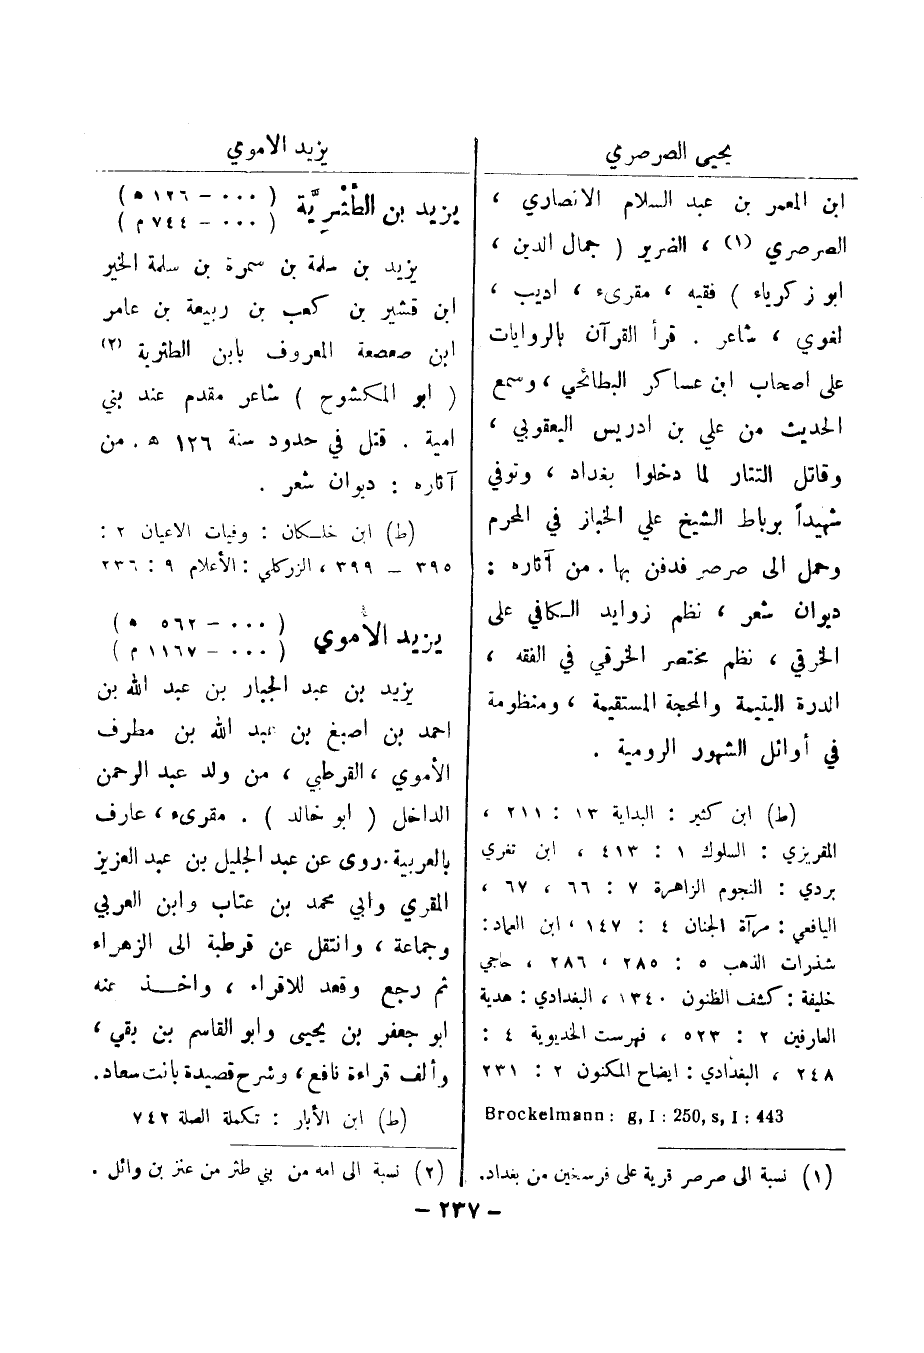 يحيى الصرصري
ابن المعمر بن عبد السلام الانصاري ،
الصرصري (١) ، الضرير ( جمال الدين ،
ابو زكرياء ) فقيه ، مقرىء ، اديب ،
لغوي ، شاعر . قرأ القرآن بالروايات
على اصحاب ابن عساكر البطائحي ، وسمع
الحديث من علي بن ادريس اليعقوبي ،
وقاتل التتار لما دخلوا بغداد ، وتوفي
شهيداً برباط الشيخ علي الخباز في المحرم
وحمل الى صرصر فدفن بها . من آثاره :
ديوان شعر ، نظم زوايد الكافي على
الخرقي ، نظم مختصر الخرقي في الفقه ،
الدرة اليتيمة والمحجة المستقيمة ، ومنظومة
في أوائل الشهور الرومية .
(ط) ابن كثير : البداية ١٣ : ٢١١ ،
المقريزي : السلوك ١ : ٤١٣ ، ابن تغري
بردي : النجوم الزاهرة ٧ : ٦٦ ، ٦٧ ،
اليافعي : مرآة الجنان ٤ : ١٤٧ ، ابن العماد :
شذرات الذهب ٥ : ٢٨٥ ، ٢٨٦ ، حاجي
خليفة : كشف الظنون ١٣٤٠ ، البغدادي : هدية
العارفين ٢ : ٥٢٣ ، فهرست الخديوية ٤ :
٢٤٨ ، البغدادي : ايضاح المكنون ٢ : ٢٣١
Brockelmann : g, I : 250, s, I : 443
(١) نسبة الى صرصر قرية على فرسخين من بغداد.
يزيد الاموي
يزيد بن الطَّثْرِيَّة ( ٠٠٠ - ١٢٦ ه )
( ٠٠٠ - ٧٤٤ م )
يزيد بن سلمة بن سمرة بن سلمة الخير
ابن قشير بن كعب بن ربيعة بن عامر
ابن صعصعة المعروف بابن الطثرية (٢)
( ابو المكشوح ) شاعر مقدم عند بني
امية . قتل في حدود سنة ١٢٦ ه . من
آثاره : ديوان شعر .
(ط) ابن خلكان : وفيات الاعيان ٢ :
٣٩٥ – ٣٩٩ ، الزركلي : الأعلام ٩ : ٢٣٦
يزيد الأموي ( ٠٠٠ - ٥٦٢ ه )
( ٠٠٠ - ١١٦٧ م )
يزيد بن عبد الجبار بن عبد الله بن
احمد بن اصبغ بن عبد الله بن مطرف
الأموي ، القرطبي ، من ولد عبد الرحمن
الداخل ( ابو خالد ) . مقرىء ، عارف
بالعربية . روى عن عبد الجليل بن عبد العزيز
المقري وابي محمد بن عتاب وابن العربي
وجماعة ، وانتقل عن قرطبة الى الزهراء
ثم رجع وقعد للاقراء ، واخذ عنه
ابو جعفر بن يحيى وابو القاسم بن بقي ،
وألف قراءة نافع ، وشرح قصيدة بانت سعاد.
(ط) ابن الأبار : تكملة الصلة ٧٤٢
(٢) نسبة الى امه من بني طثر من عنز بن وائل .
– ٢٣٧ –